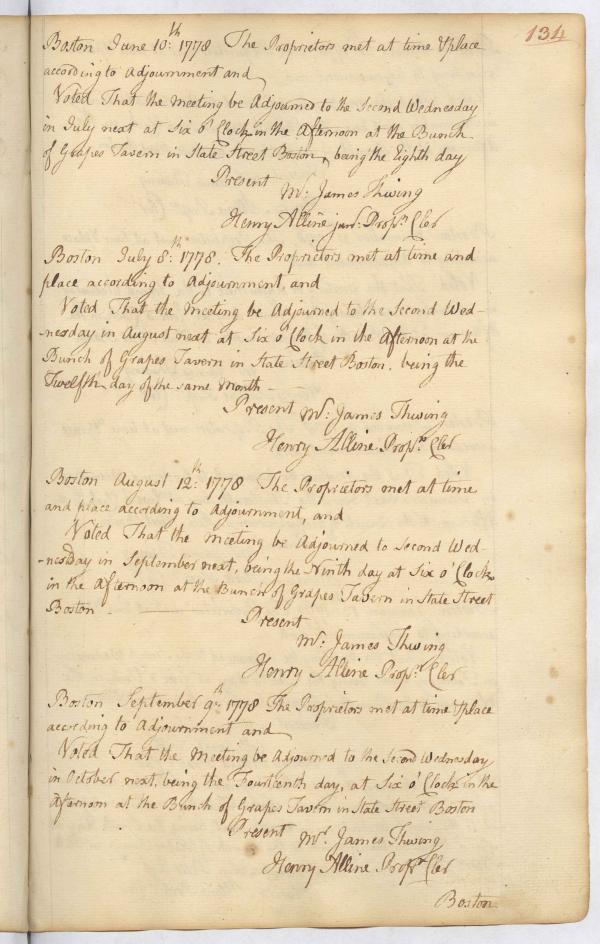 134
Boston June 10th: 1778 The Proprietors met at time & place
according to Adjournment and
Voted That the meeting be Adjourned to the Second Wednesday
in July next at Six o'Clock in the Afternoon at the Bunch
of Grapes Tavern in State Street Boston, being the Eighth day
Present
Mr. James Thwing
Henry Alline junr. Propr. Cler
Boston July 8th: 1778. The Proprietors met at time and
place according to Adjournment, and
Voted That the Meeting be Adjourned to the Second Wed-
-nesday in August next at Six o'Clock in the Afternoon at the
Bunch of Grapes Tavern in State Street Boston. being the
Twelfth day of the same Month -
Present Mr. James Thwing
Henry Alline Propr. Cler
Boston August 12th: 1778 The Proprietors met at time
and place according to Adjournment, and
Voted That the meeting be Adjourned to Second Wed-
-nesday in September next, being the Ninth day at Six o'Clock
in the Afternoon at the Bunch of Grapes Tavern in State Street
Boston -
Present
Mr. James Thwing
Henry Alline Propr. Cler
Boston September 9th 1778 The Proprietors met at time & place
according to Adjournment and
Voted That the Meeting be Adjourned to the Second Wednesday
in October next, being the Fourteenth day, at Six o'Clock in the
Afternoon at the Bunch of Grapes Tavern in State Street Boston
Present Mr. James Thwing
Henry Alline Propr. Cler
Boston